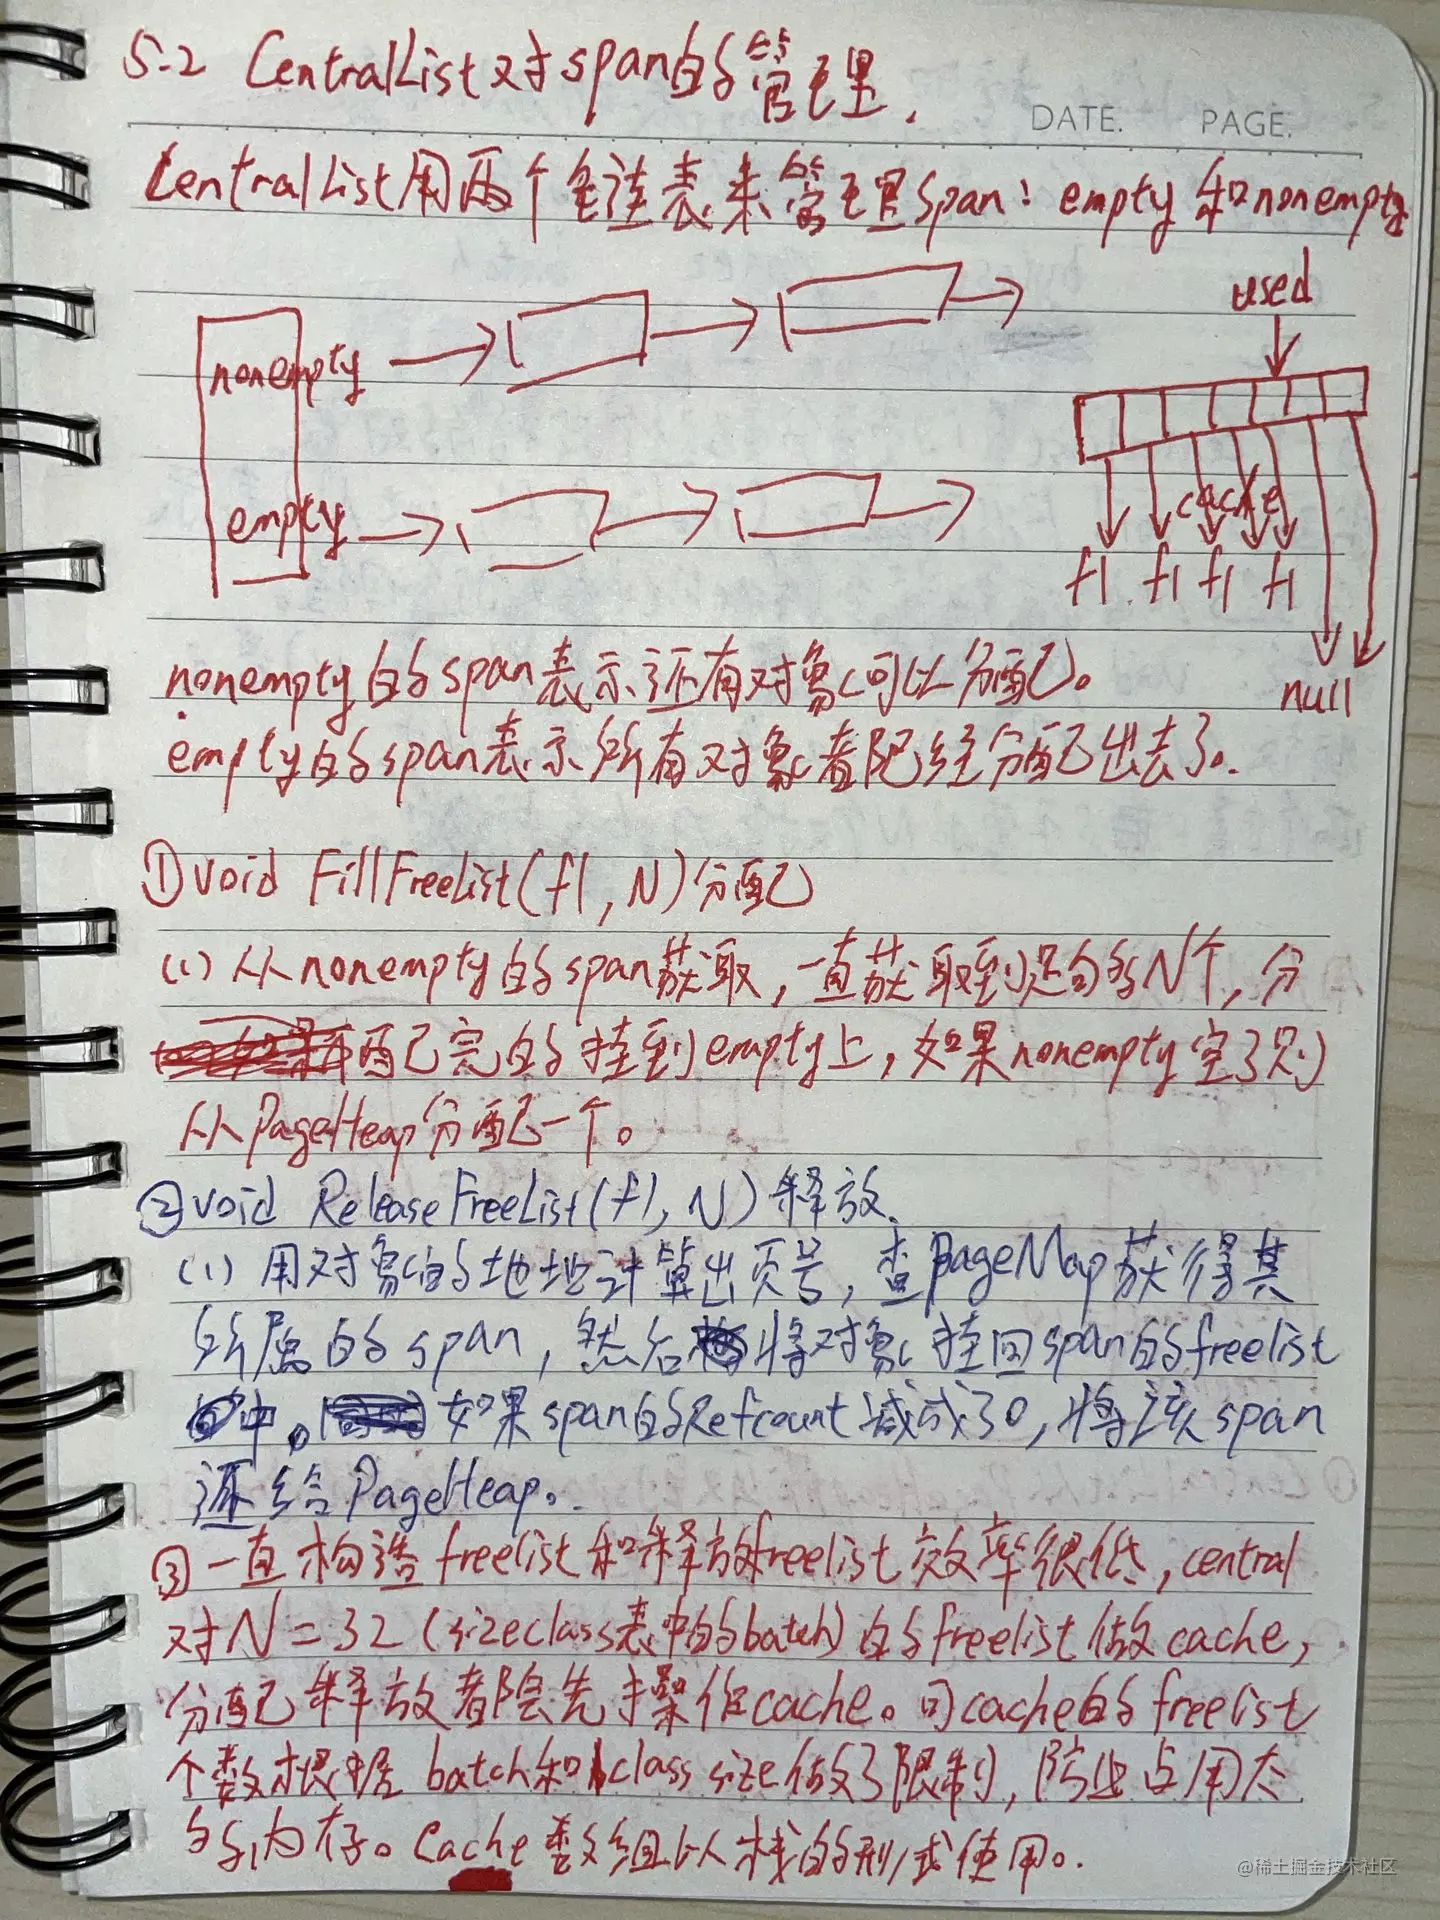 5.2 CentralList对span的管理.
DATE. PAGE.
CentralList用两个链表来管理span: empty和nonempty
used
nonempty
empty
cache
fl fl fl fl
null
nonempty的span表示还有对象可以分配。
empty的span表示所有对象都已经分配出去了。
①void FillFreeList(fl, N)分配
(1)从nonempty的span获取,一直获取到足够的N个,分
配完的挂到empty上,如果nonempty空了则
从PageHeap分配一个。
②void ReleaseFreeList(fl, N)释放.
(1)用对象的地址计算出页号,查PageMap获得其
所属的span,然后将对象挂回span的freelist
中。如果span的Refcount减成了0,将该span
还给PageHeap。
③一直构造freelist和释放freelist效率很低,central
对N=32(sizeclass表中的batch)的freelist做cache,
分配释放都会先操作cache。可cache的freelist
个数根据batch和class size做了限制,防止占用太
多内存。Cache数组以栈的形式使用。
@稀土掘金技术社区